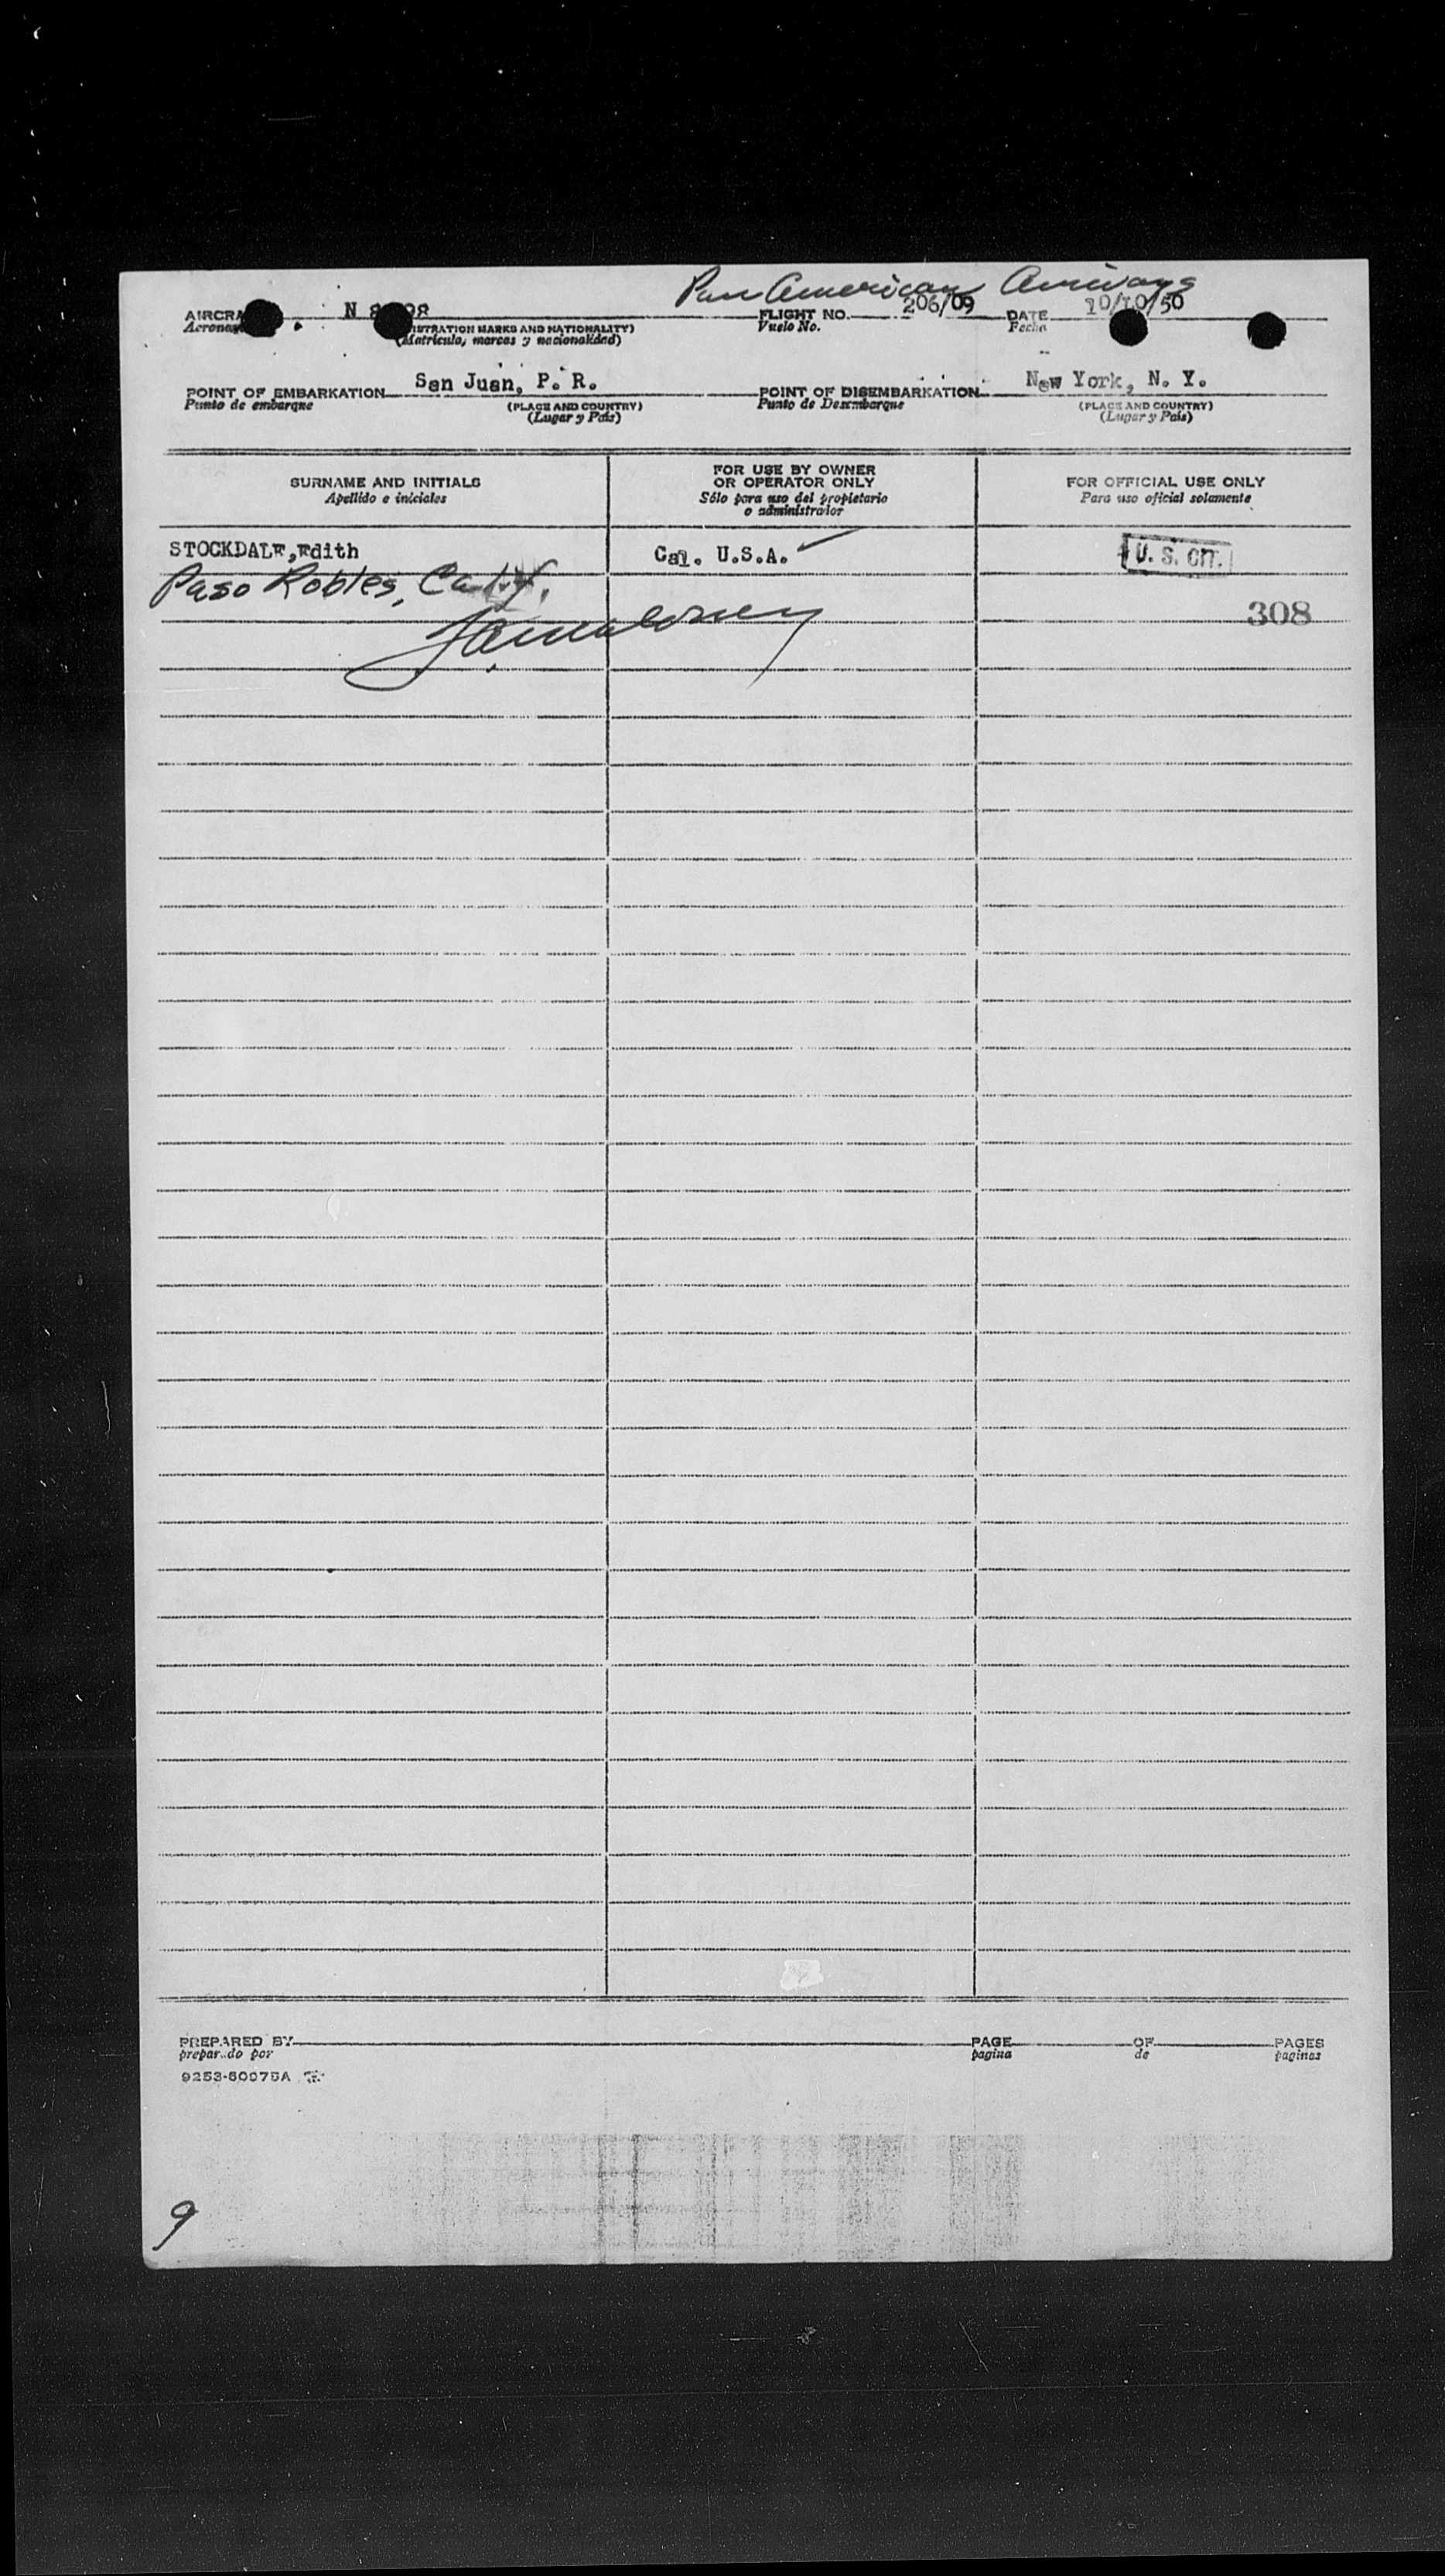 Pan American Airways
AIRCRA N 8 98 FLIGHT NO. 206/09 DATE 10/10/50
Aeronav (Matricula, marcas y nacionalidad) Vuelo No. Fecha
ISTRATION MARKS AND NATIONALITY)
POINT OF EMBARKATION San Juan, P. R. POINT OF DISEMBARKATION New York, N. Y.
Punto de embarque (PLACE AND COUNTRY) Punto de Desembarque (PLACE AND COUNTRY)
(Lugar y País) (Lugar y País)
SURNAME AND INITIALS
Apellido e iniciales
FOR USE BY OWNER
OR OPERATOR ONLY
Sólo para uso del propietario
o administrador
FOR OFFICIAL USE ONLY
Para uso oficial solamente
STOCKDALE,Edith Cal. U.S.A. U. S. CIT.
Paso Robles, Calif.
308
PREPARED BY PAGE OF PAGES
preparado por pagina de paginas
9253-60075A
9